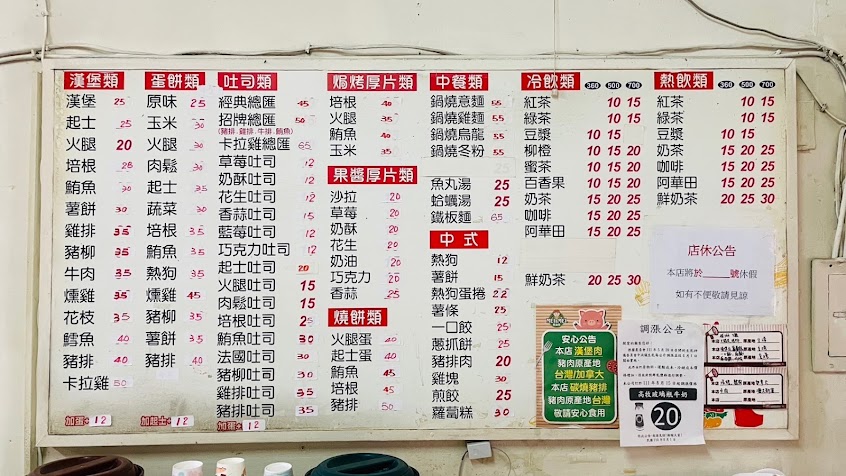 漢堡類
漢堡 25
起士 25
火腿 20
培根 28
鮪魚 30
薯餅 30
雞排 35
豬柳 35
牛肉 35
燻雞 35
花枝 35
鱈魚 40
豬排 40
卡拉雞 50
加蛋+12
蛋餅類
原味 25
玉米 30
火腿 30
肉鬆 30
起士 30
蔬菜 30
培根 35
鮪魚 35
熱狗 35
燻雞 45
豬柳 35
薯餅 35
豬排 40
加起士+12
吐司類
經典總匯 45
招牌總匯 50
(豬排.雞排.牛排.鮪魚)
卡拉雞總匯 65
草莓吐司 12
奶酥吐司 12
花生吐司 12
香蒜吐司 15
藍莓吐司 12
巧克力吐司 12
起士吐司 20
火腿吐司 15
肉鬆吐司 15
培根吐司 25
玉米吐司
法國吐司 30
豬柳吐司 30
雞排吐司 35
豬排吐司 35
加蛋+12
焗烤厚片類
培根 40
火腿 35
鮪魚 40
玉米 35
果醬厚片類
沙拉 20
草莓 20
奶酥 20
花生 20
奶油 20
巧克力 20
香蒜 25
燒餅類
火腿蛋 40
起士蛋 40
鮪魚 45
培根 45
豬排 50
中餐類
鍋燒意麵 55
鍋燒雞麵 55
鍋燒烏龍 55
鍋燒冬粉 55
魚丸湯 25
蛤蠣湯 25
鐵板麵 65
中式
熱狗 12
薯餅 15
熱狗蛋捲 22
薯條 25
一口餃 25
蔥抓餅 25
豬排肉 20
雞塊 30
煎餃 25
蘿蔔糕 30
冷飲類 360 500 700
紅茶 10 15
綠茶 10 15
豆漿 10 15
柳橙 10 15 20
蜜茶 10 15 20
百香果 10 15 20
奶茶 15 20 25
咖啡 15 20 25
阿華田 15 20 25
鮮奶茶 20 25 30
熱飲類 360 500 700
紅茶 10 15
綠茶 10 15
豆漿 10 15
奶茶 15 20 25
咖啡 15 20 25
阿華田 15 20 25
鮮奶茶 20 25 30
店休公告
本店將於____號休假
如有不便敬請見諒
安心公告
本店 漢堡肉
豬肉原產地
台灣/加拿大
本店 碳燒豬排
豬肉原產地 台灣
敬請安心食用
調漲公告
高枝玻璃瓶牛奶
20